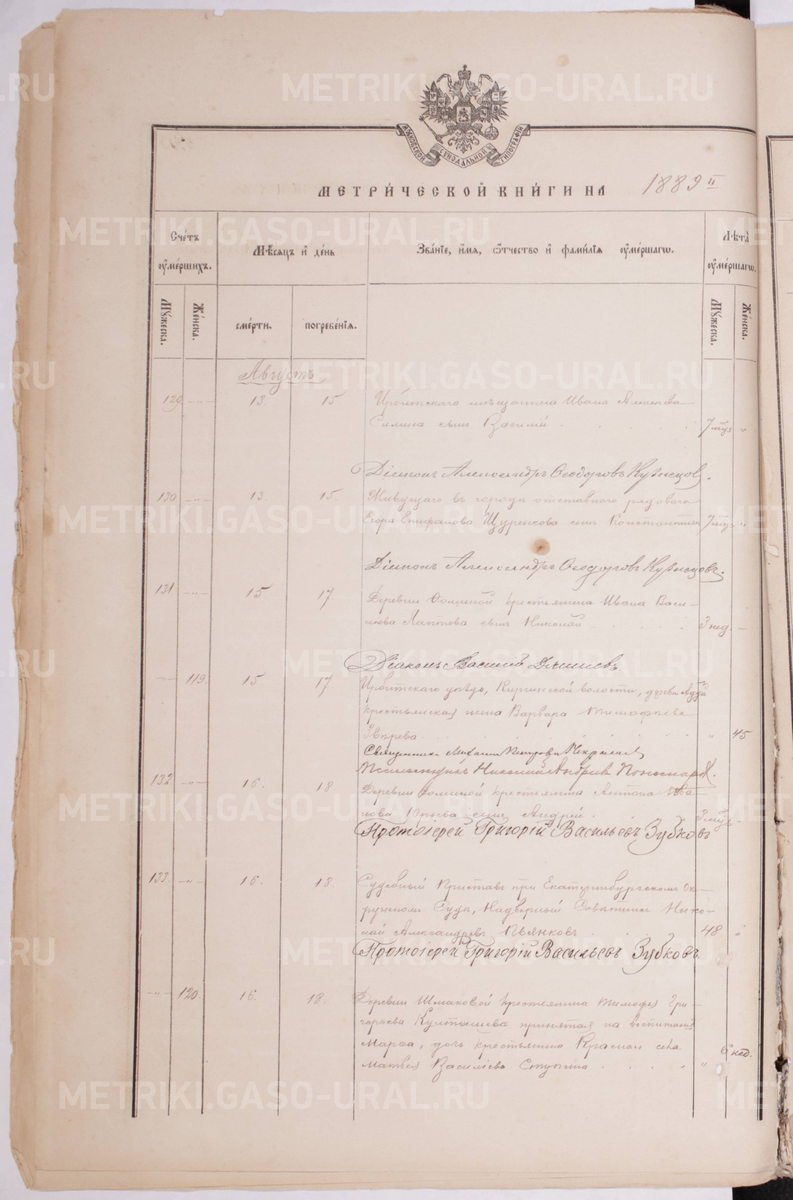 МЕТРИ́ЧЕСКОЙ КНИ́ГИ НА 1889 г.
Сче́тъ оумершихъ.
Мѣсяцъ и де́нь
Зва́нїе, и́мя, ѻ҆́тчество и фами́лїя оумершагѡ.
Лѣта̀ оумершагѡ.
Мꙋжеска.
Же́нска.
сме́рти.
погребе́нїя.
Мꙋжеска.
Же́нска.
Августъ
129 13 15 Ирбитскаго мѣщанина Ивана
Силина сынъ Василій 7 мѣс
Діаконъ Александръ Ѳеодоровъ Кузнецовъ.
130 13. 15. Живущаго въ города отставного рядового
Егора Епифанова Щурикова сынъ Константинъ 7 мѣс
Діаконъ Александръ Ѳеодоровъ Кузнецовъ.
131 15 17 Деревни крестьянина Ивана Васи-
льева Лаптева сынъ Николай 3 нед
Діаконъ Василій
119. 15 17 Ирбитскаго уѣзда, Киргинской волости,
крестьянская жена Варвара Тимофеева
Звѣрева 45
Священникъ Михаилъ Петровъ
Псаломщикъ Николай Андреевъ Пономаревъ.
132 16. 18 Деревни Фоминой крестьянина Антона
Юрьева сынъ Андрей 3 мѣс
Протоіерей Григорій Васильевъ Зубковъ
133 16. 18. Судебный Приставъ при Екатеринбургскомъ Ок-
ружномъ Судѣ, Надворный Совѣтникъ Нико-
лай Александровъ Пьянковъ 48
Протоіерей Григорій Васильевъ Зубковъ
120. 16. 18. Деревни Шмаковой крестьянина Тимофея Гри-
горьева принятая на воспитаніе
Марѳа, дочь крестьянина Краснаго села
Матвея Васильева Ступина 6 нед.